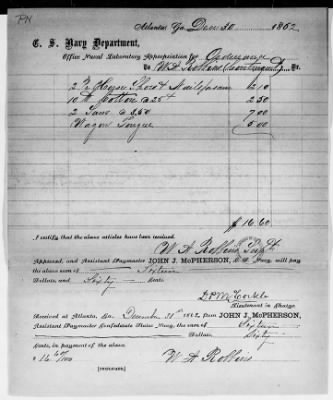 PN
Atlanta Ga Dec 30 1862
C. S. Navy Department,
Office Naval Laboratory Appropriation for Ordnance
To W. A. Robbins Dr.
2.10
10 lb Cotton @ 25 ¢ 2.50
2 Saws @ 3.50 7.00
Wagon Tongue 5.00
$ 16.60
I certify that the above articles have been received.
W. A. Robbins
Approved, and Assistant Paymaster JOHN J. McPHERSON, C. S. Navy, will pay
the above sum of Sixteen
Dollars, and Sixty Cents.
D. P. McCorkle
Lieutenant in Charge
Received at Atlanta, Ga. December 31st 1862, from JOHN J. McPHERSON,
Assistant Paymaster Confederate States Navy, the sum of Sixteen
Dollars Sixty
Cents, in payment of the above
$ 16 60/100 W. A. Robbins